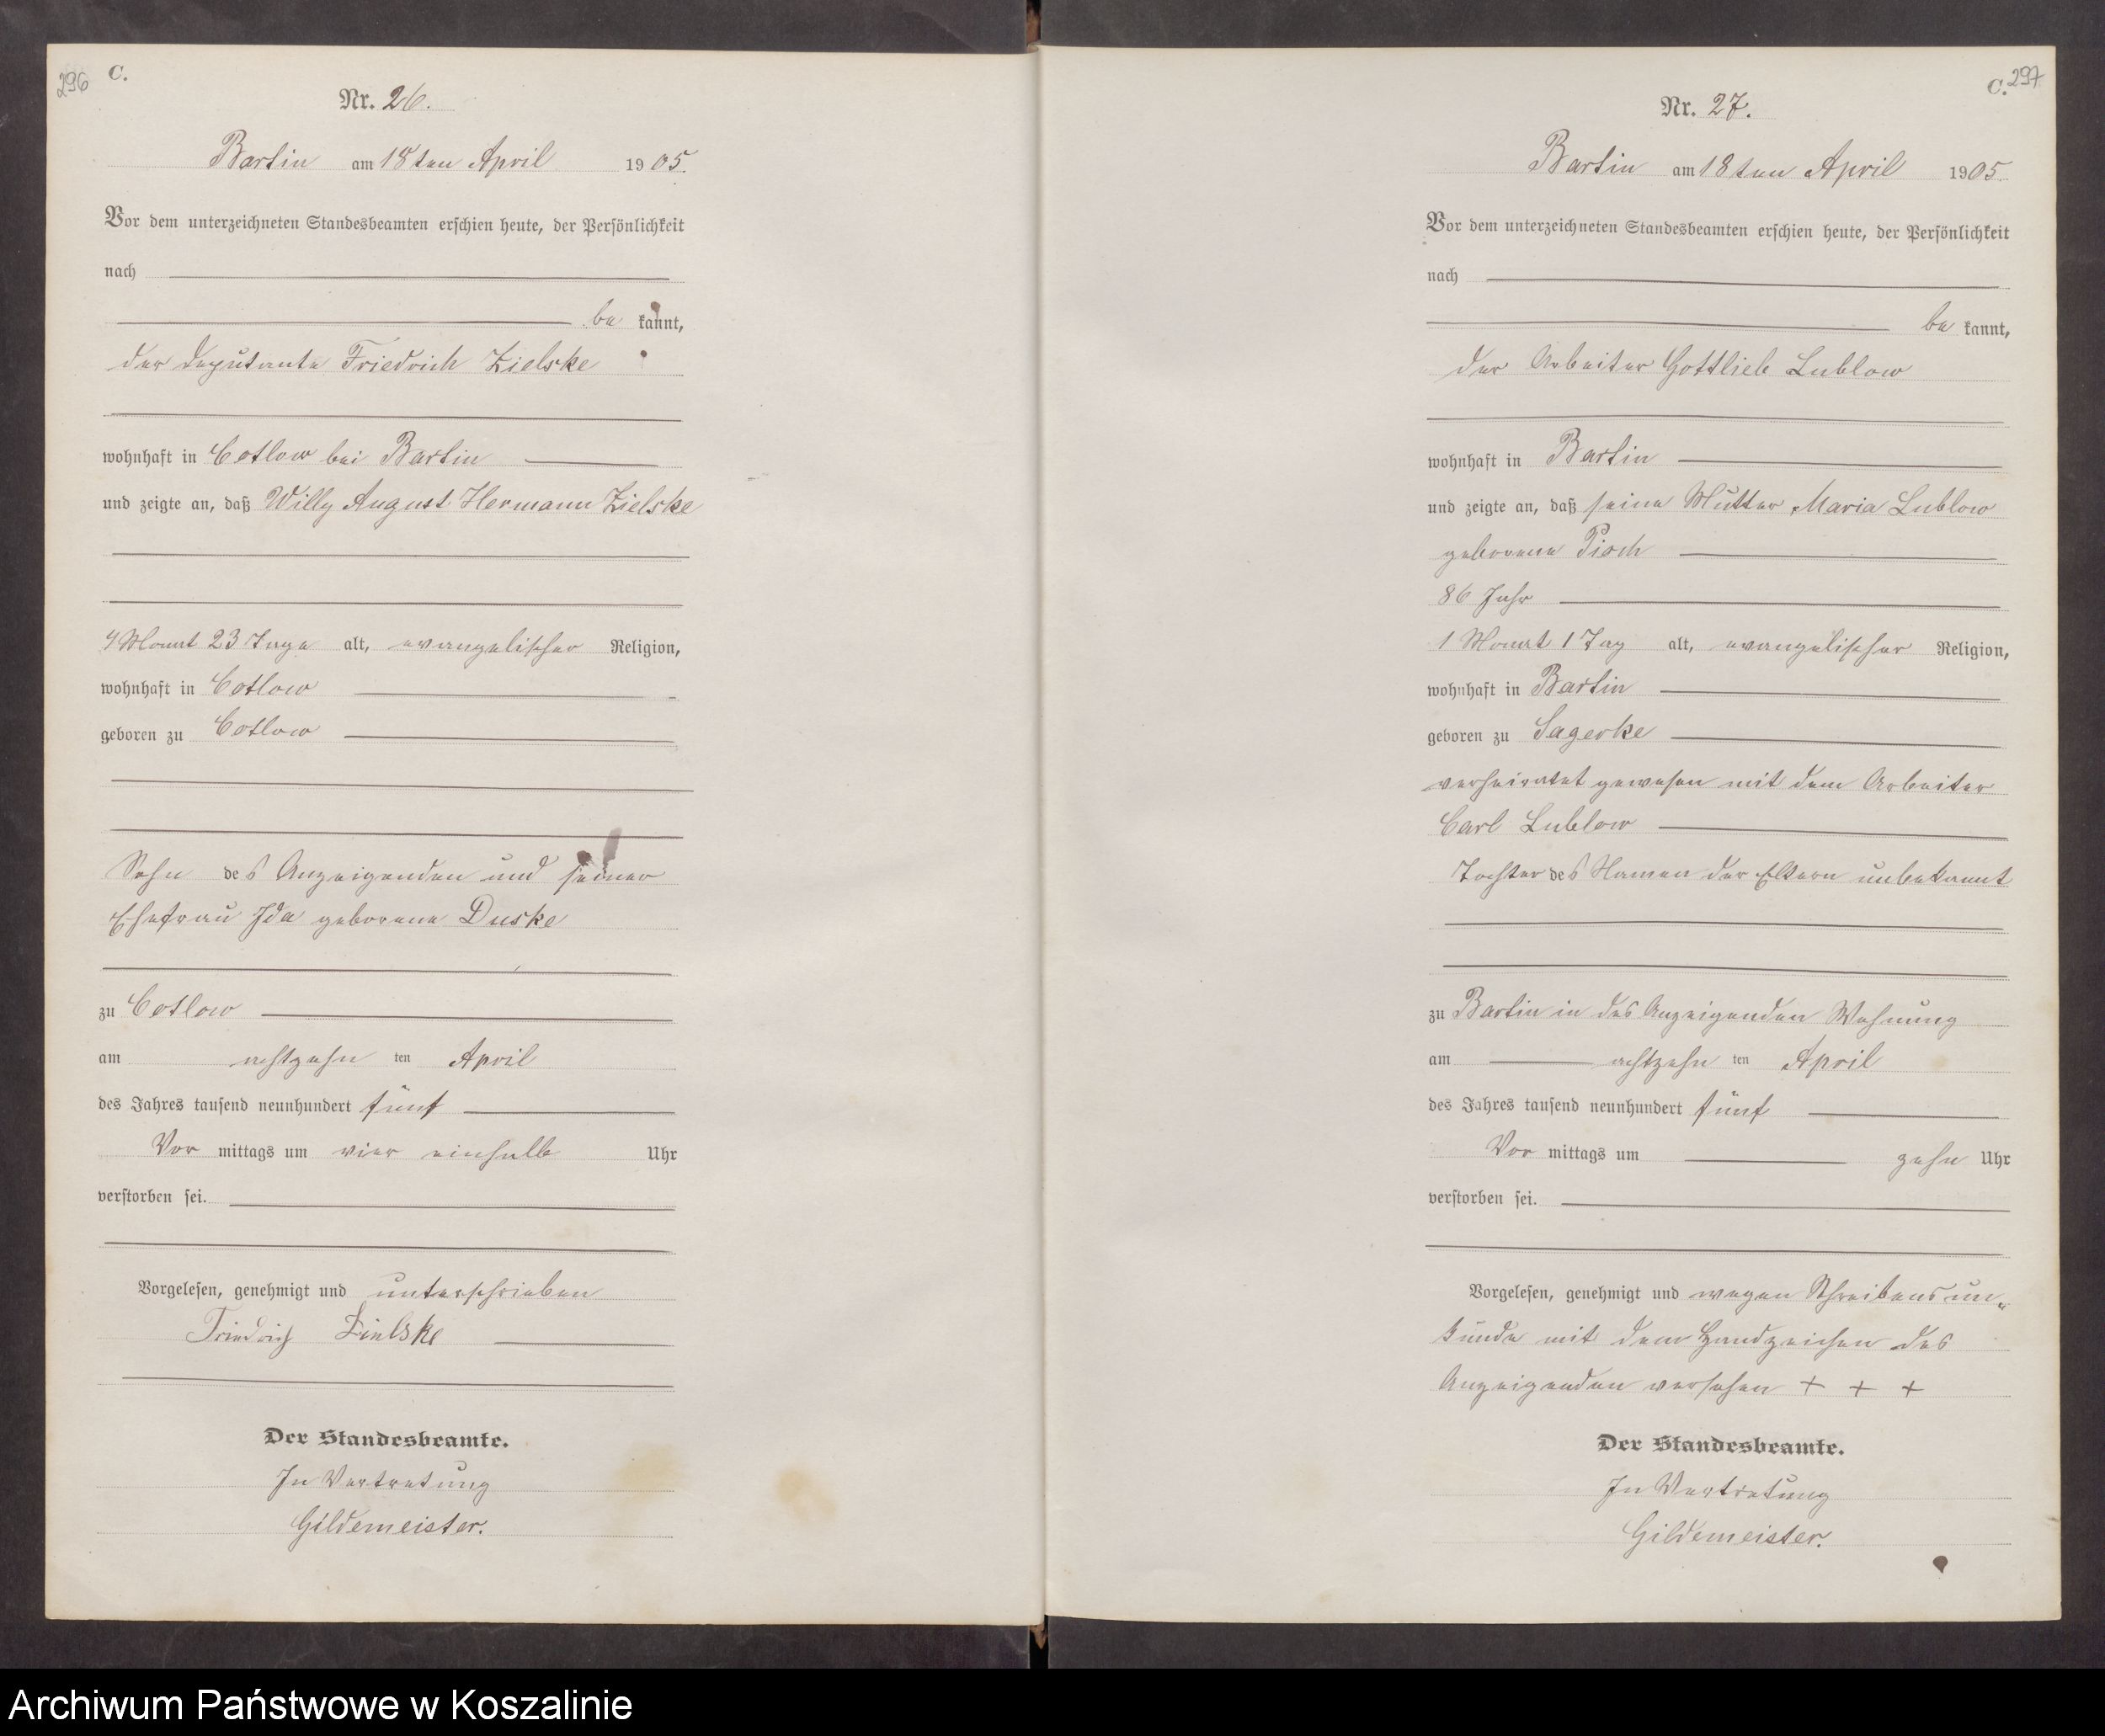 296
C.
Nr. 26.
Bartin am 18ten April 1905.
Vor dem unterzeichneten Standesbeamten erschien heute, der Persönlichkeit
nach
be kannt,
der Deputante Friedrich Zielske
wohnhaft in Cotlow bei Bartin
und zeigte an, daß Willy August Hermann Zielske
4 Monat 23 Tage alt, evangelischer Religion,
wohnhaft in Cotlow
geboren zu Cotlow
Sohn des Anzeigenden und seiner
Ehefrau Ida geborene Duske
zu Cotlow
am achtzehn ten April
des Jahres tausend neunhundert fünf
Vor mittags um vier einhalb Uhr
verstorben sei.
Vorgelesen, genehmigt und unterschrieben
Friedrich Zielske
Der Standesbeamte.
In Vertretung
Gildemeister.
C. 297
Nr. 27.
Bartin am 18ten April 1905.
Vor dem unterzeichneten Standesbeamten erschien heute, der Persönlichkeit
nach
be kannt,
der Arbeiter Gottlieb Lublow
wohnhaft in Bartin
und zeigte an, daß seine Mutter Maria Lublow
geborene Pioch
86 Jahr
1 Monat 1 Tag alt, evangelischer Religion,
wohnhaft in Bartin
geboren zu Sagerke
verheiratet gewesen mit dem Arbeiter
Carl Lublow
Tochter des Namen der Eltern unbekannt
zu Bartin in des Anzeigenden Wohnung
am achtzehn ten April
des Jahres tausend neunhundert fünf
Vor mittags um zehn Uhr
verstorben sei.
Vorgelesen, genehmigt und wegen Schreibensun„
kunde mit dem Handzeichen des
Anzeigenden versehen + + +
Der Standesbeamte.
In Vertretung
Gildemeister.
Archiwum Państwowe w Koszalinie